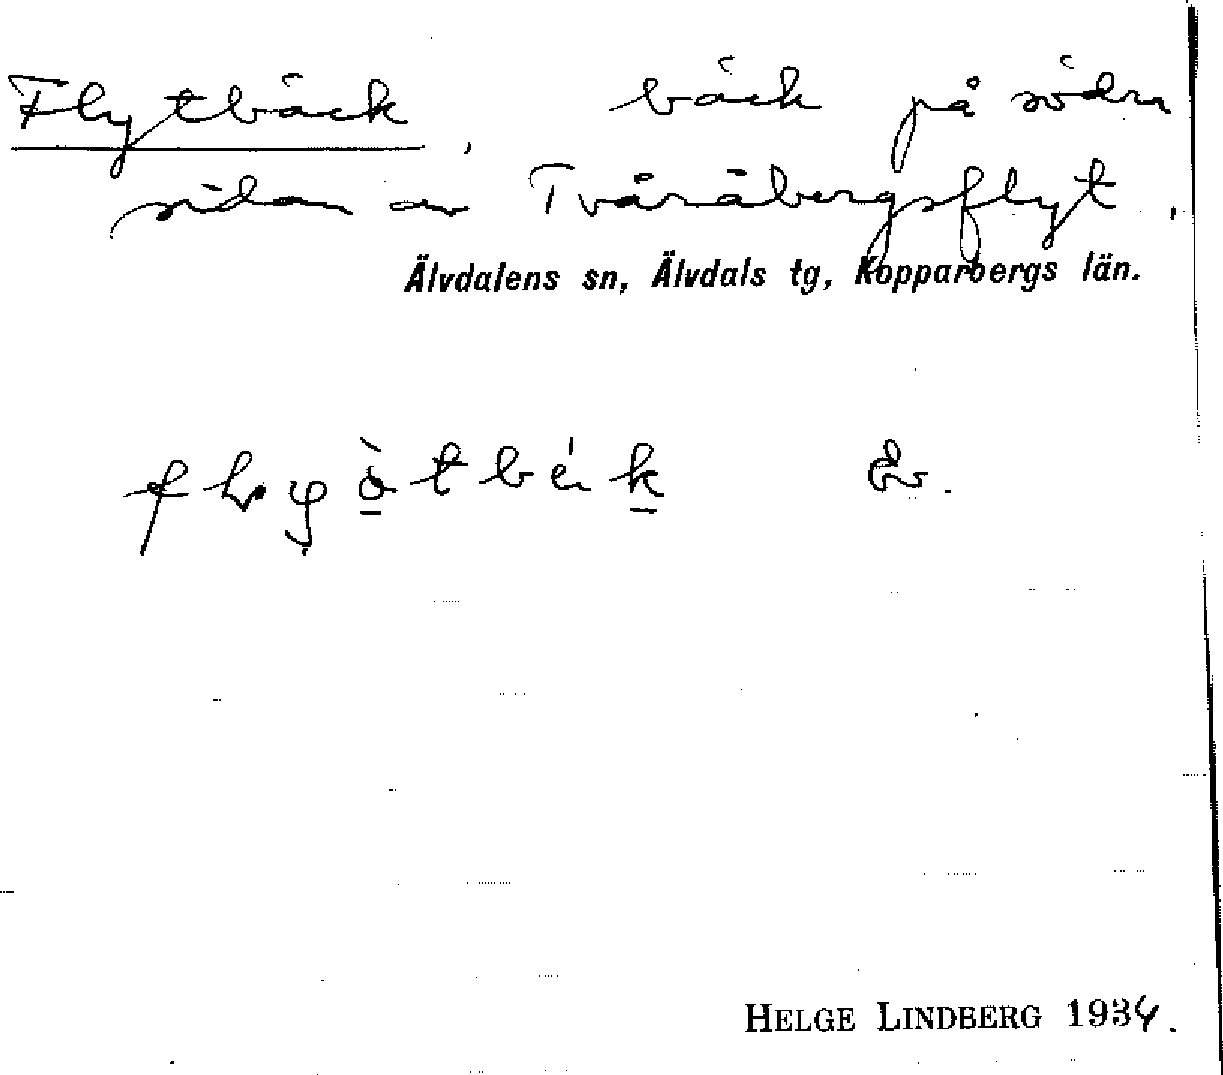 Flytbäck, bäck på södra
sidan av Tvåråbergsflyt,
Älvdalens sn, Älvdals tg, Kopparbergs län.
HELGE LINDBERG 1934.